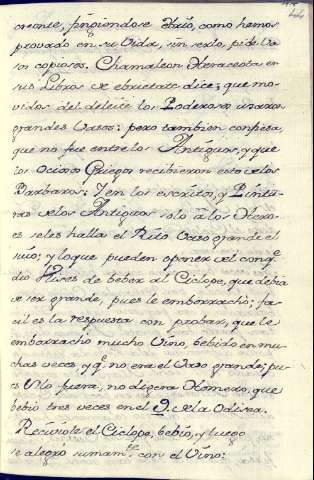 creonte, fingiendose Ebrio, como hemos
provado en su Vida, sin serlo, pide Va
sos copiosos. Chamaleon Heraceota en
sus Libros de ebrietate dice; que mo
vidos del deleite los Poderosos usaron
grandes Vasos: pero tambien confiesa,
que no fue entre los Antiguos, y que
los Ociosos Griegos recibieron esto de los
Barbaros; Y en los escritos, y Pintu
ras de los Antiguos solo à los Heroes
se les halla el Rito Vaso grande el
suio; y lo que pueden oponer del conq.e
dio Ulises de beber al Ciclope, que debia
de ser grande, pues le emborrachò; fa
cil es la respuesta con probar, que le
emborracho mucho Vino, bebido en mu
chas veces, y q.e no era el Vaso grande; pu
es si lo fuera, no digera Homero, que
bebio tres veces en el 9. de la Odisea.
Reciviole el Ciclope, bebio, y luego
se alegrò sumam.te con el Vino: